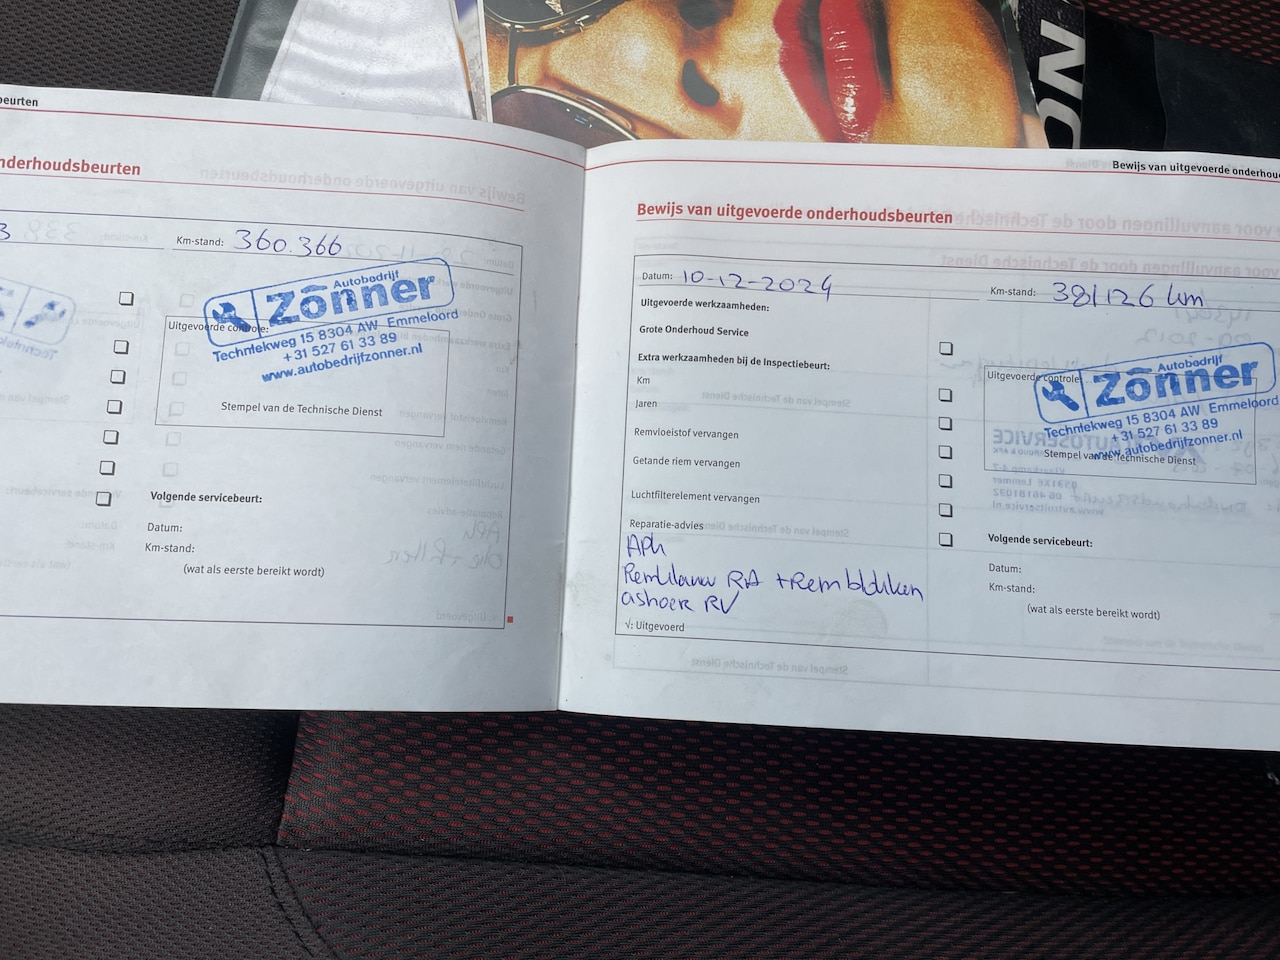 beurten
nderhoudsbeurten
3
Km-stand: 360.366
Autobedrijf
Zōnner
Techniekweg 15 8304 AW Emmeloord
+31 527 61 33 89
www.autobedrijfzonner.nl
Uitgevoerde controle:
Stempel van de Technische Dienst
Volgende servicebeurt:
Datum:
Km-stand:
(wat als eerste bereikt wordt)
NO
Bewijs van uitgevoerde onderhou
Bewijs van uitgevoerde onderhoudsbeurten
Datum: 10-12-2024
Km-stand: 381126 km
Uitgevoerde werkzaamheden:
Grote Onderhoud Service
Extra werkzaamheden bij de Inspectiebeurt:
Km
Jaren
Remvloeistof vervangen
Getande riem vervangen
Luchtfilterelement vervangen
Reparatie-advies
APk
Remklauw RA + Remblokken
ashoek RV
√: Uitgevoerd
Uitgevoerde controle:
Autobedrijf
Zōnner
Techniekweg 15 8304 AW Emmeloord
+31 527 61 33 89
www.autobedrijfzonner.nl
Stempel van de Technische Dienst
Volgende servicebeurt:
Datum:
Km-stand:
(wat als eerste bereikt wordt)